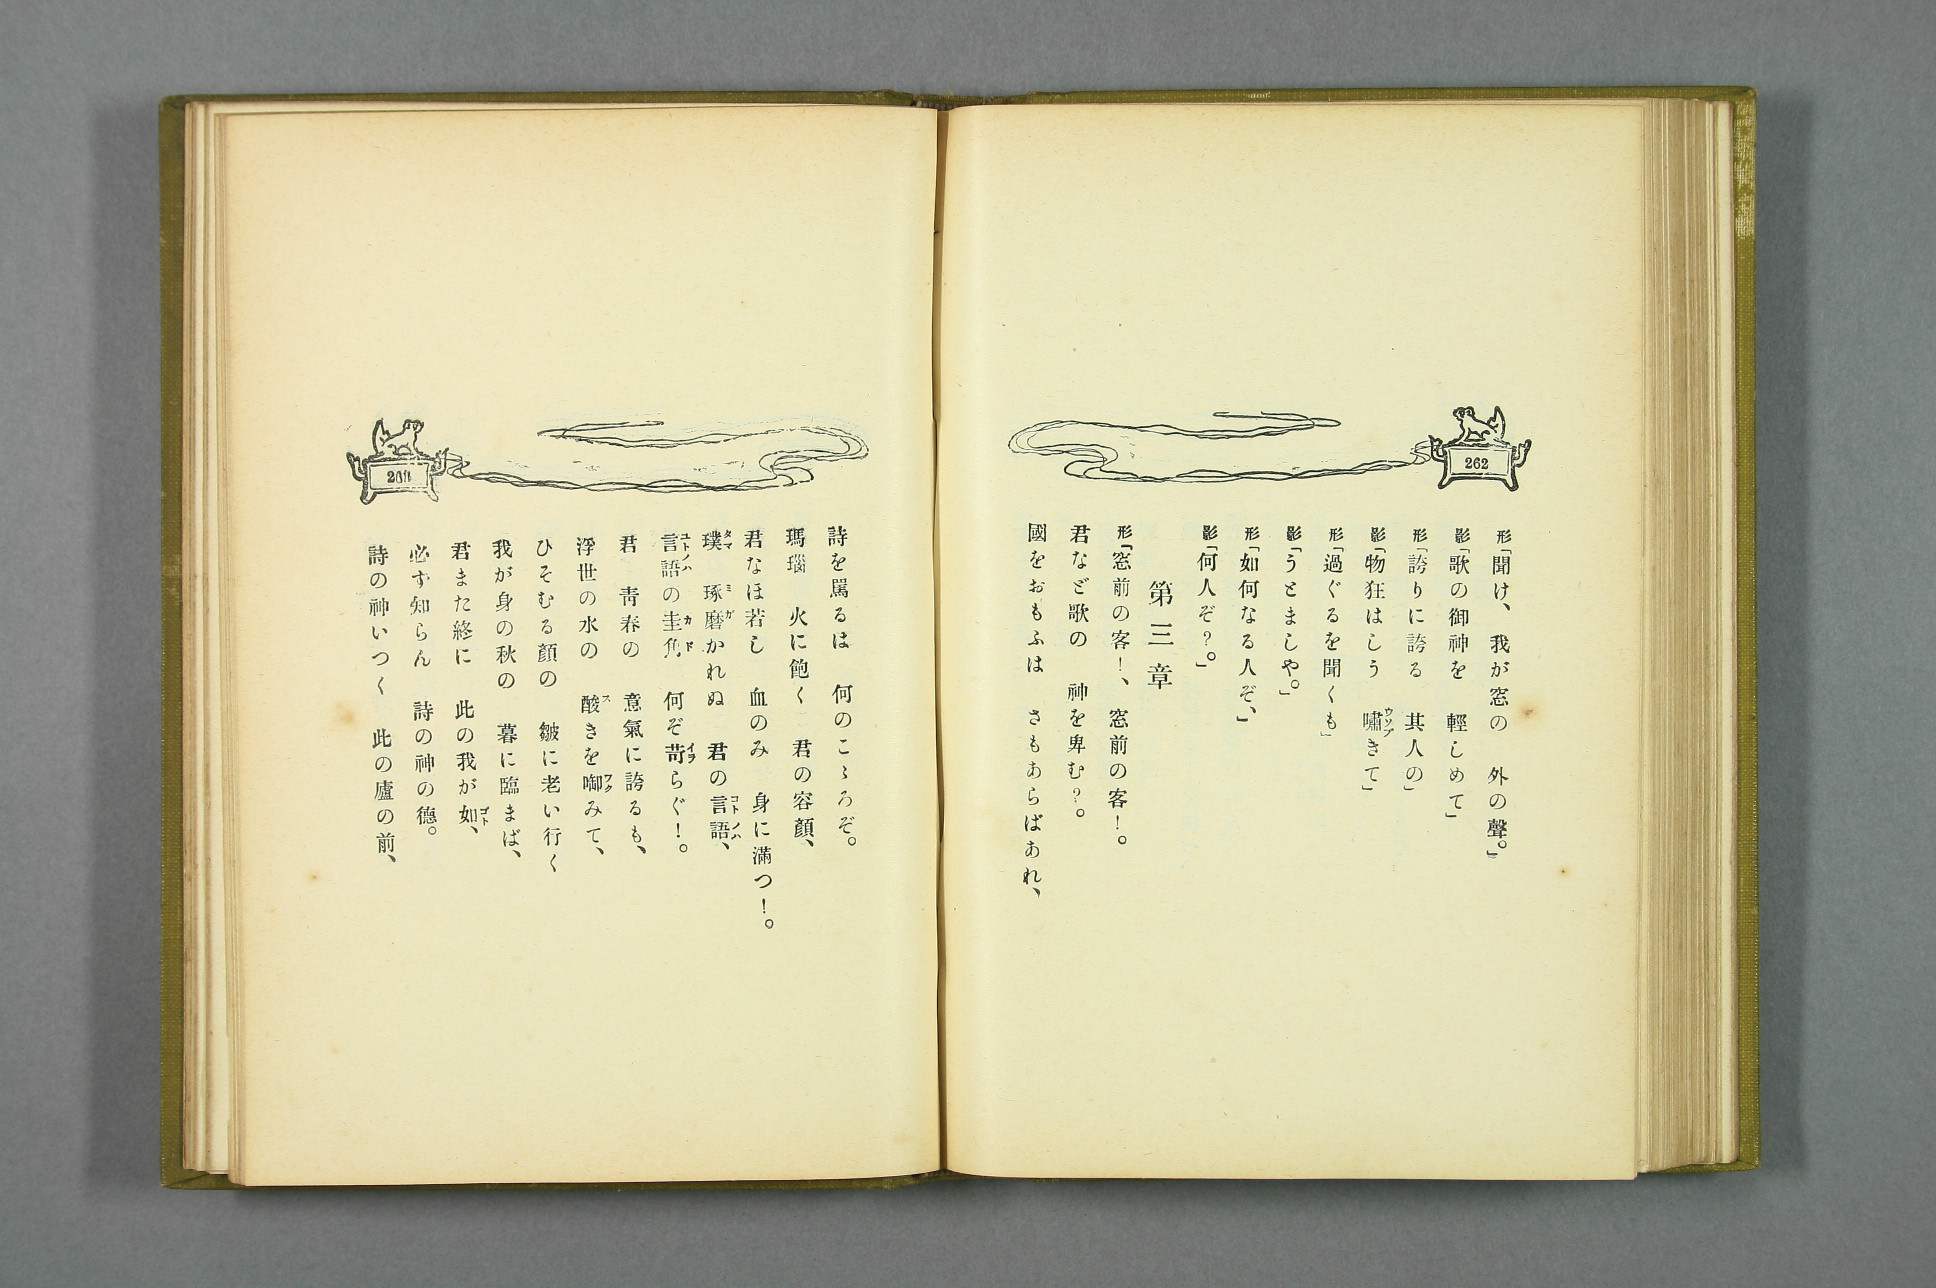 262
形「聞け、　我が窓の　外の聲。」
影「歌の御神を　輕しめて」
形「誇りに誇る　其人の」
影「物狂はしう　嘯きて」
形「過ぐるを聞くも」
影「うとましや。」
形「如何なる人ぞ、」
影「何人ぞ?。」
第三章
形「窓前の客!、　窓前の客!。
君など歌の　神を卑む?。
國をおもふは　さもあらばあれ、
詩を罵るは　何のこゝろぞ。
瑪瑙　火に飽く　君の容顏、
君なほ若し　血のみ　身に滿つ!。
璞　琢磨かれぬ　君の言語、
言語の圭角　何ぞ苛らぐ!。
君　靑春の　意氣に誇るも、
浮世の水の　酸きを啣みて、
ひそむる顏の　皺に老い行く
我が身の秋の　暮に臨まば、
君また終に　此の我が如、
必ず知らん　詩の神の德。
詩の神いつく　此の廬の前、